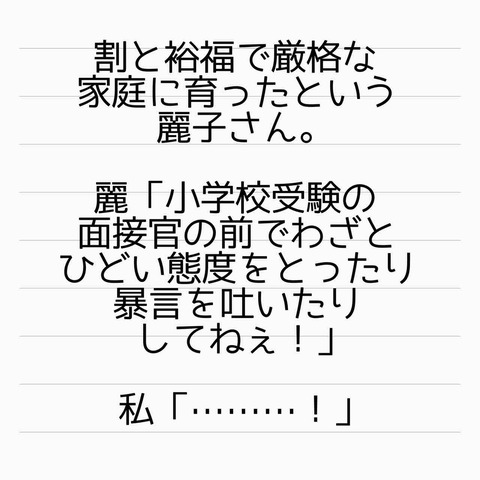 割と裕福で厳格な
家庭に育ったという
麗子さん。
麗「小学校受験の
面接官の前でわざと
ひどい態度をとったり
暴言を吐いたり
してねぇ！」
私「………！」